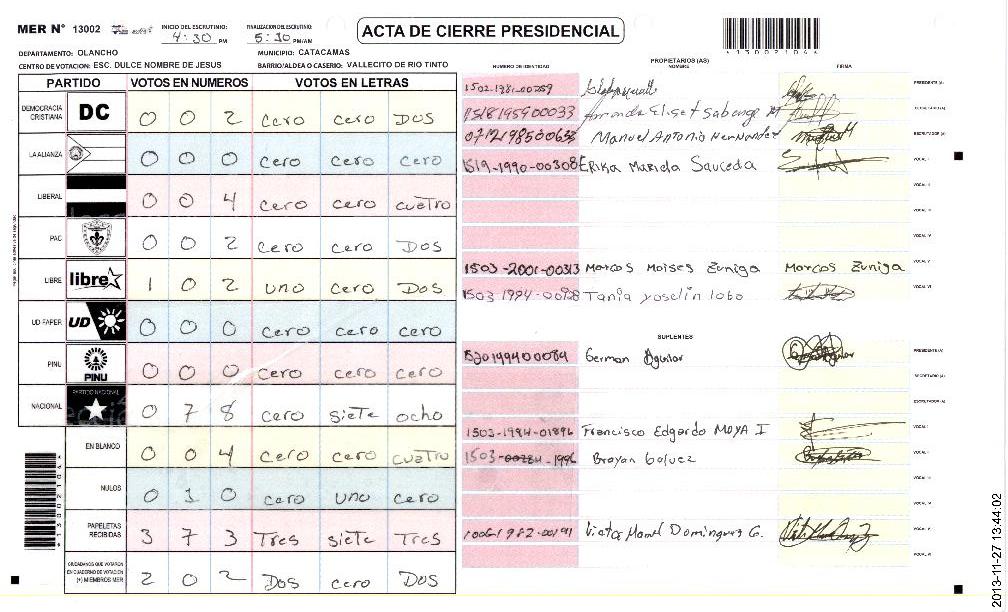 MER N° 13002
INICIO DEL ESCRUTINIO: 4:30 PM
FINALIZACION DEL ESCRUTINIO: 5:10 PM/AM
ACTA DE CIERRE PRESIDENCIAL
*13002104*
DEPARTAMENTO: OLANCHO
MUNICIPIO: CATACAMAS
CENTRO DE VOTACION: ESC. DULCE NOMBRE DE JESUS
BARRIO/ALDEA O CASERIO: VALLECITO DE RIO TINTO
PARTIDO VOTOS EN NUMEROS VOTOS EN LETRAS
DEMOCRACIA CRISTIANA DC 0 0 2 cero cero Dos
LA ALIANZA 0 0 0 cero cero cero
LIBERAL 0 0 4 cero cero cuatro
PAC 0 0 2 cero cero Dos
LIBRE libre 1 0 2 uno cero Dos
UD FAPER UD 0 0 0 cero cero cero
PINU PINU 0 0 0 cero cero cero
NACIONAL PARTIDO NACIONAL 0 7 8 cero siete ocho
EN BLANCO 0 0 4 cero cero cuatro
NULOS 0 1 0 cero uno cero
PAPELETAS RECIBIDAS 3 7 3 Tres siete Tres
CIUDADANOS QUE VOTARON EN CUADERNO DE VOTACION (+) MIEMBROS MER 2 0 2 Dos cero Dos
*13002104*
PROPIETARIOS (AS)
NUMERO DE IDENTIDAD NOMBRE FIRMA
1502-1981-00259 PRESIDENTE (A)
1518195900033 Elizet Sabengo M SECRETARIO (A)
Manuel Antonio Hernandez ESCRUTADOR (A)
1519-1990-00308 Erika Mariela Sauceda VOCAL I
VOCAL II
VOCAL III
VOCAL IV
1503-2001-00313 Marcos Moises Zuniga Marcos Zuniga VOCAL V
1503 1994-00 Tania yoselin lobo VOCAL VI
SUPLENTES
German Aguilar PRESIDENTE (A)
SECRETARIO (A)
ESCRUTADOR (A)
1503-1994-01896 Francisco Edgardo MOYA I VOCAL I
1503- Brayan Galvez VOCAL II
VOCAL III
VOCAL IV
1006-1982-00191 Victor Manl Dominguez G. VOCAL V
VOCAL VI
2013-11-27 13:44:02